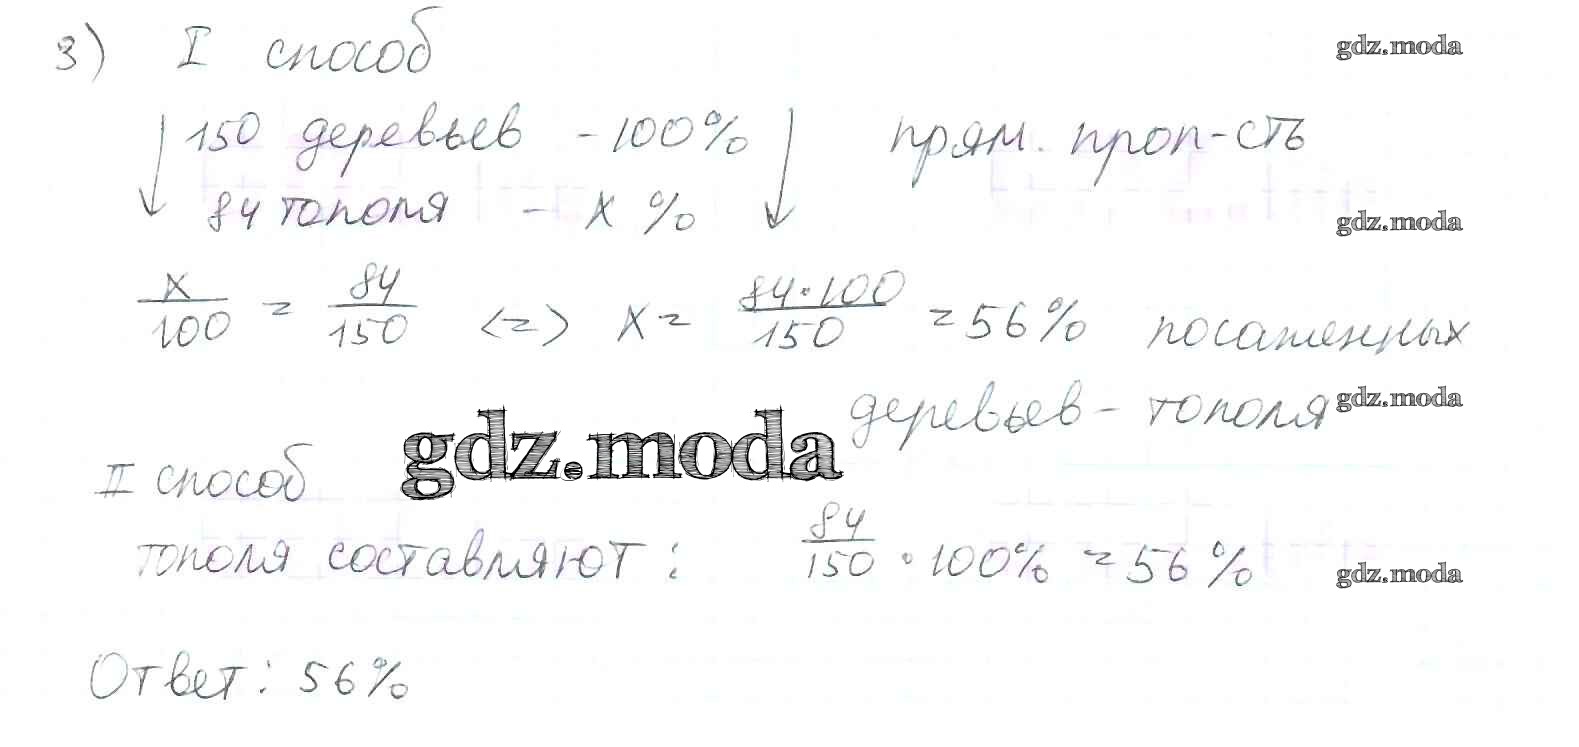 3) I способ
gdz.moda
150 деревьев - 100% прям. проп-сть
84 тополя - x %
gdz.moda
x/100 = 84/150 <=> x = 84·100/150 = 56% посаженных
деревьев - тополя
gdz.moda
gdz.moda
II способ
тополя составляют: 84/150 · 100% = 56%
gdz.moda
Ответ: 56%